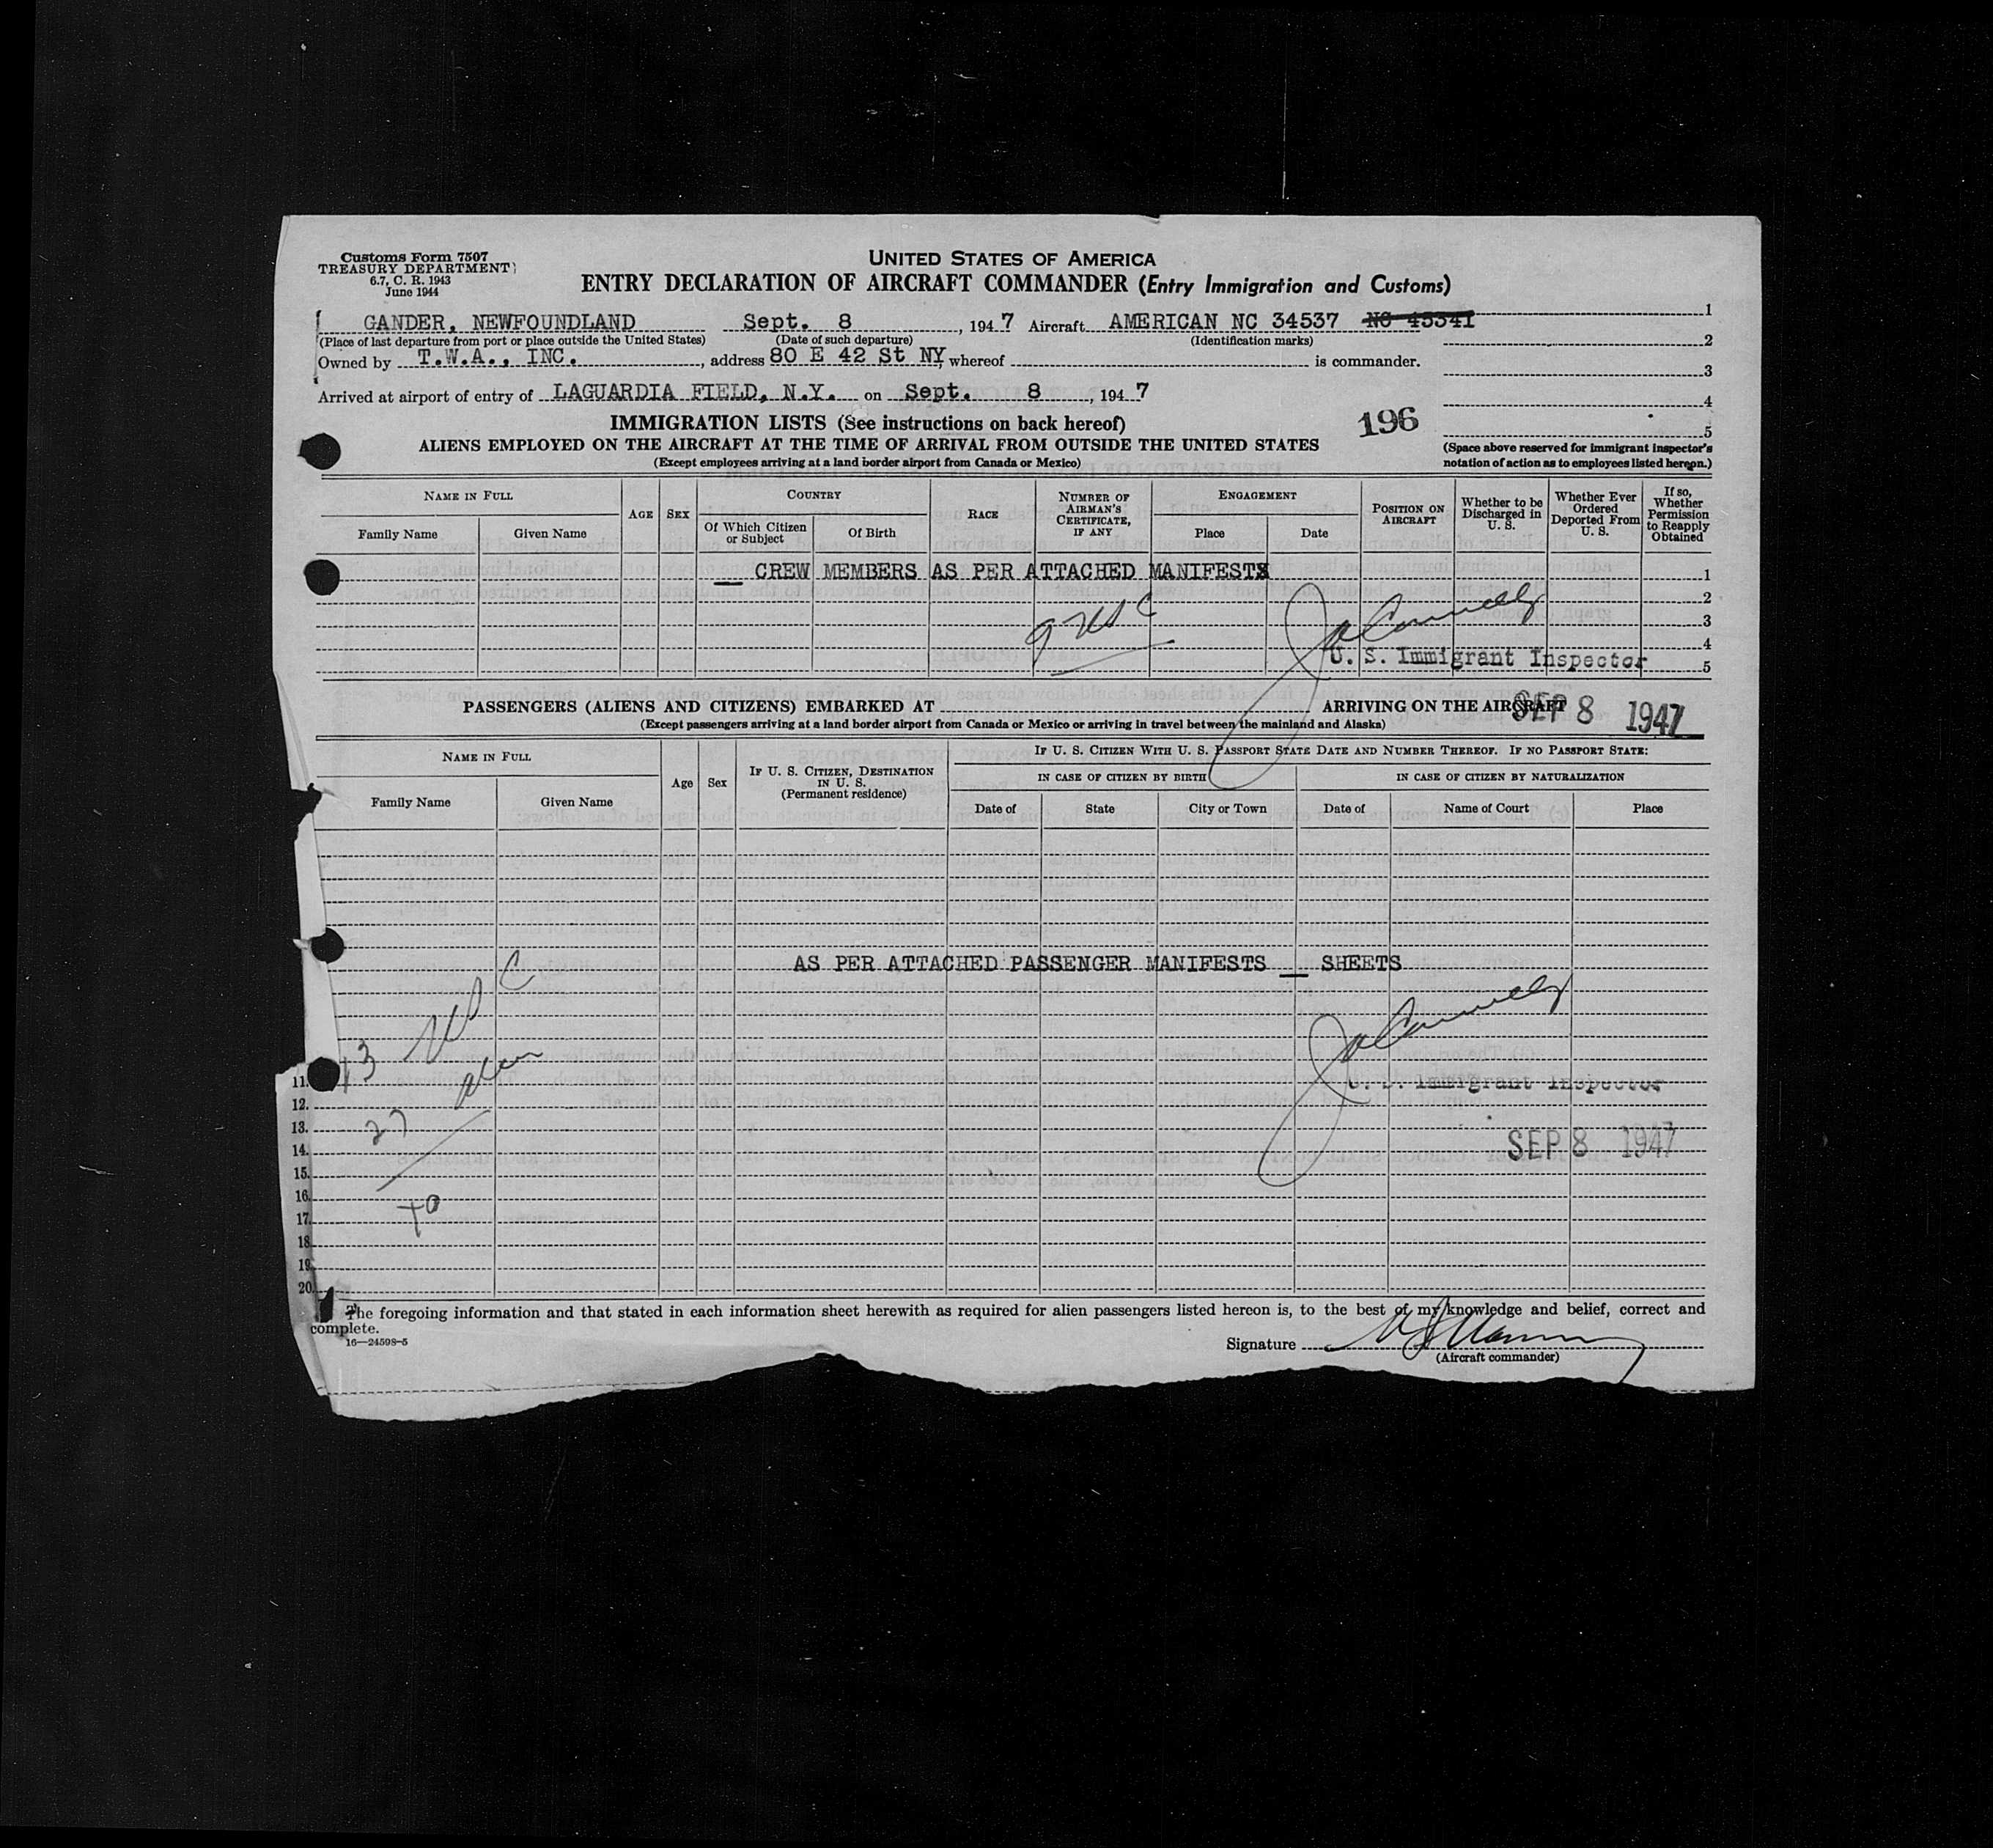 Customs Form 7507
TREASURY DEPARTMENT
6.7, C. R. 1943
June 1944
UNITED STATES OF AMERICA
ENTRY DECLARATION OF AIRCRAFT COMMANDER (Entry Immigration and Customs)
GANDER, NEWFOUNDLAND Sept. 8, 1947 Aircraft AMERICAN NC 34537 NC 45341
(Place of last departure from port or place outside the United States) (Date of such departure) (Identification marks)
Owned by T.W.A., INC., address 80 E 42 St NY, whereof is commander.
Arrived at airport of entry of LAGUARDIA FIELD, N.Y. on Sept. 8, 1947
1
2
3
4
5
IMMIGRATION LISTS (See instructions on back hereof)
196
ALIENS EMPLOYED ON THE AIRCRAFT AT THE TIME OF ARRIVAL FROM OUTSIDE THE UNITED STATES
(Except employees arriving at a land border airport from Canada or Mexico)
(Space above reserved for immigrant inspector's notation of action as to employees listed hereon.)
NAME IN FULL
Family Name
Given Name
AGE
SEX
COUNTRY
Of Which Citizen or Subject
Of Birth
RACE
NUMBER OF AIRMAN'S CERTIFICATE, IF ANY
ENGAGEMENT
Place
Date
POSITION ON AIRCRAFT
Whether to be Discharged in U. S.
Whether Ever Ordered Deported From U. S.
If so, Whether Permission to Reapply Obtained
CREW MEMBERS AS PER ATTACHED MANIFESTS 1
2
9 USC 3
4
U. S. Immigrant Inspector 5
PASSENGERS (ALIENS AND CITIZENS) EMBARKED AT ARRIVING ON THE AIRCRAFT
SEP 8 1947
(Except passengers arriving at a land border airport from Canada or Mexico or arriving in travel between the mainland and Alaska)
NAME IN FULL
Family Name
Given Name
Age
Sex
IF U. S. CITIZEN, DESTINATION IN U. S.
(Permanent residence)
IF U. S. CITIZEN WITH U. S. PASSPORT STATE DATE AND NUMBER THEREOF. IF NO PASSPORT STATE:
IN CASE OF CITIZEN BY BIRTH
IN CASE OF CITIZEN BY NATURALIZATION
Date of
State
City or Town
Date of
Name of Court
Place
AS PER ATTACHED PASSENGER MANIFESTS SHEETS
13 USC
27 alien
40
U. S. Immigrant Inspector
SEP 8 1947
11.
12.
13.
14.
15.
16.
17.
18.
19.
20.
The foregoing information and that stated in each information sheet herewith as required for alien passengers listed hereon is, to the best of my knowledge and belief, correct and
complete.
16—24598-5
Signature
(Aircraft commander)